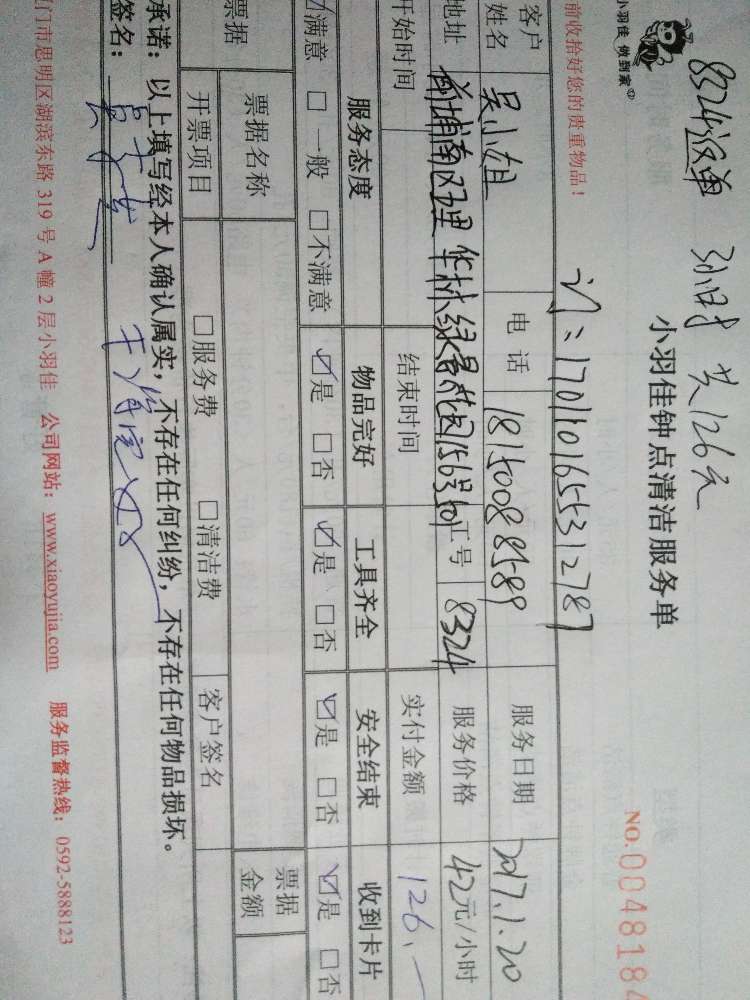 8324返单 3小时 共126元
小羽佳 做到家
小羽佳钟点清洁服务单
NO.0048184
前收拾好您的贵重物品!
订:1701101655312787
客户姓名 吴小姐 电话 18150088589 服务日期 2017.1.20
地址 前埔南区 华林绿景花园156号501 工号 8324 服务价格 42元/小时
开始时间 结束时间 实付金额 126.一
服务态度 物品完好 工具齐全 安全结束 收到卡片
☑满意 □一般 □不满意 ☑是 □否 ☑是 □否 ☑是 □否 ☑是 □否
票据 票据名称 票据金额
开票项目 □服务费 □清洁费 客户签名
承诺:以上填写经本人确认属实,不存在任何纠纷,不存在任何物品损坏。
签名:
门市思明区湖滨东路 319 号 A 幢 2 层小羽佳 公司网站:www.xiaoyujia.com 服务监督热线:0592-5888123